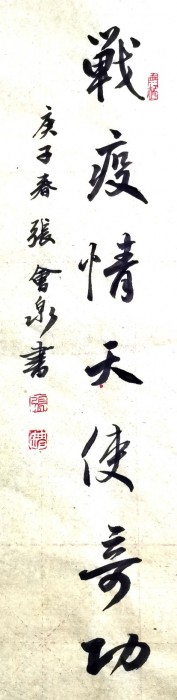 戰疫情天使奇功
庚子春張會泉書